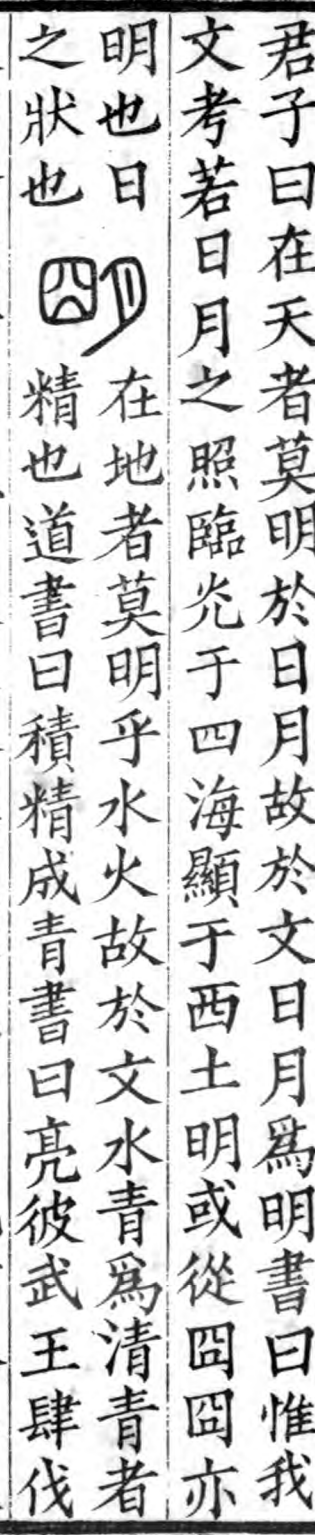 君子曰在天者莫明於日月故於文日月爲明書曰惟我
文考若日月之照臨光于四海顯于西土明或從囧囧亦
明也日
之狀也
朙
在地者莫明乎水火故於文水青爲清青者
精也道書曰積精成青書曰亮彼武王肆伐